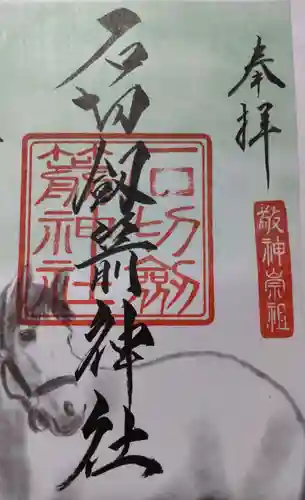 奉拝
敬神崇祖
石切劔箭神社
石切劔箭神社